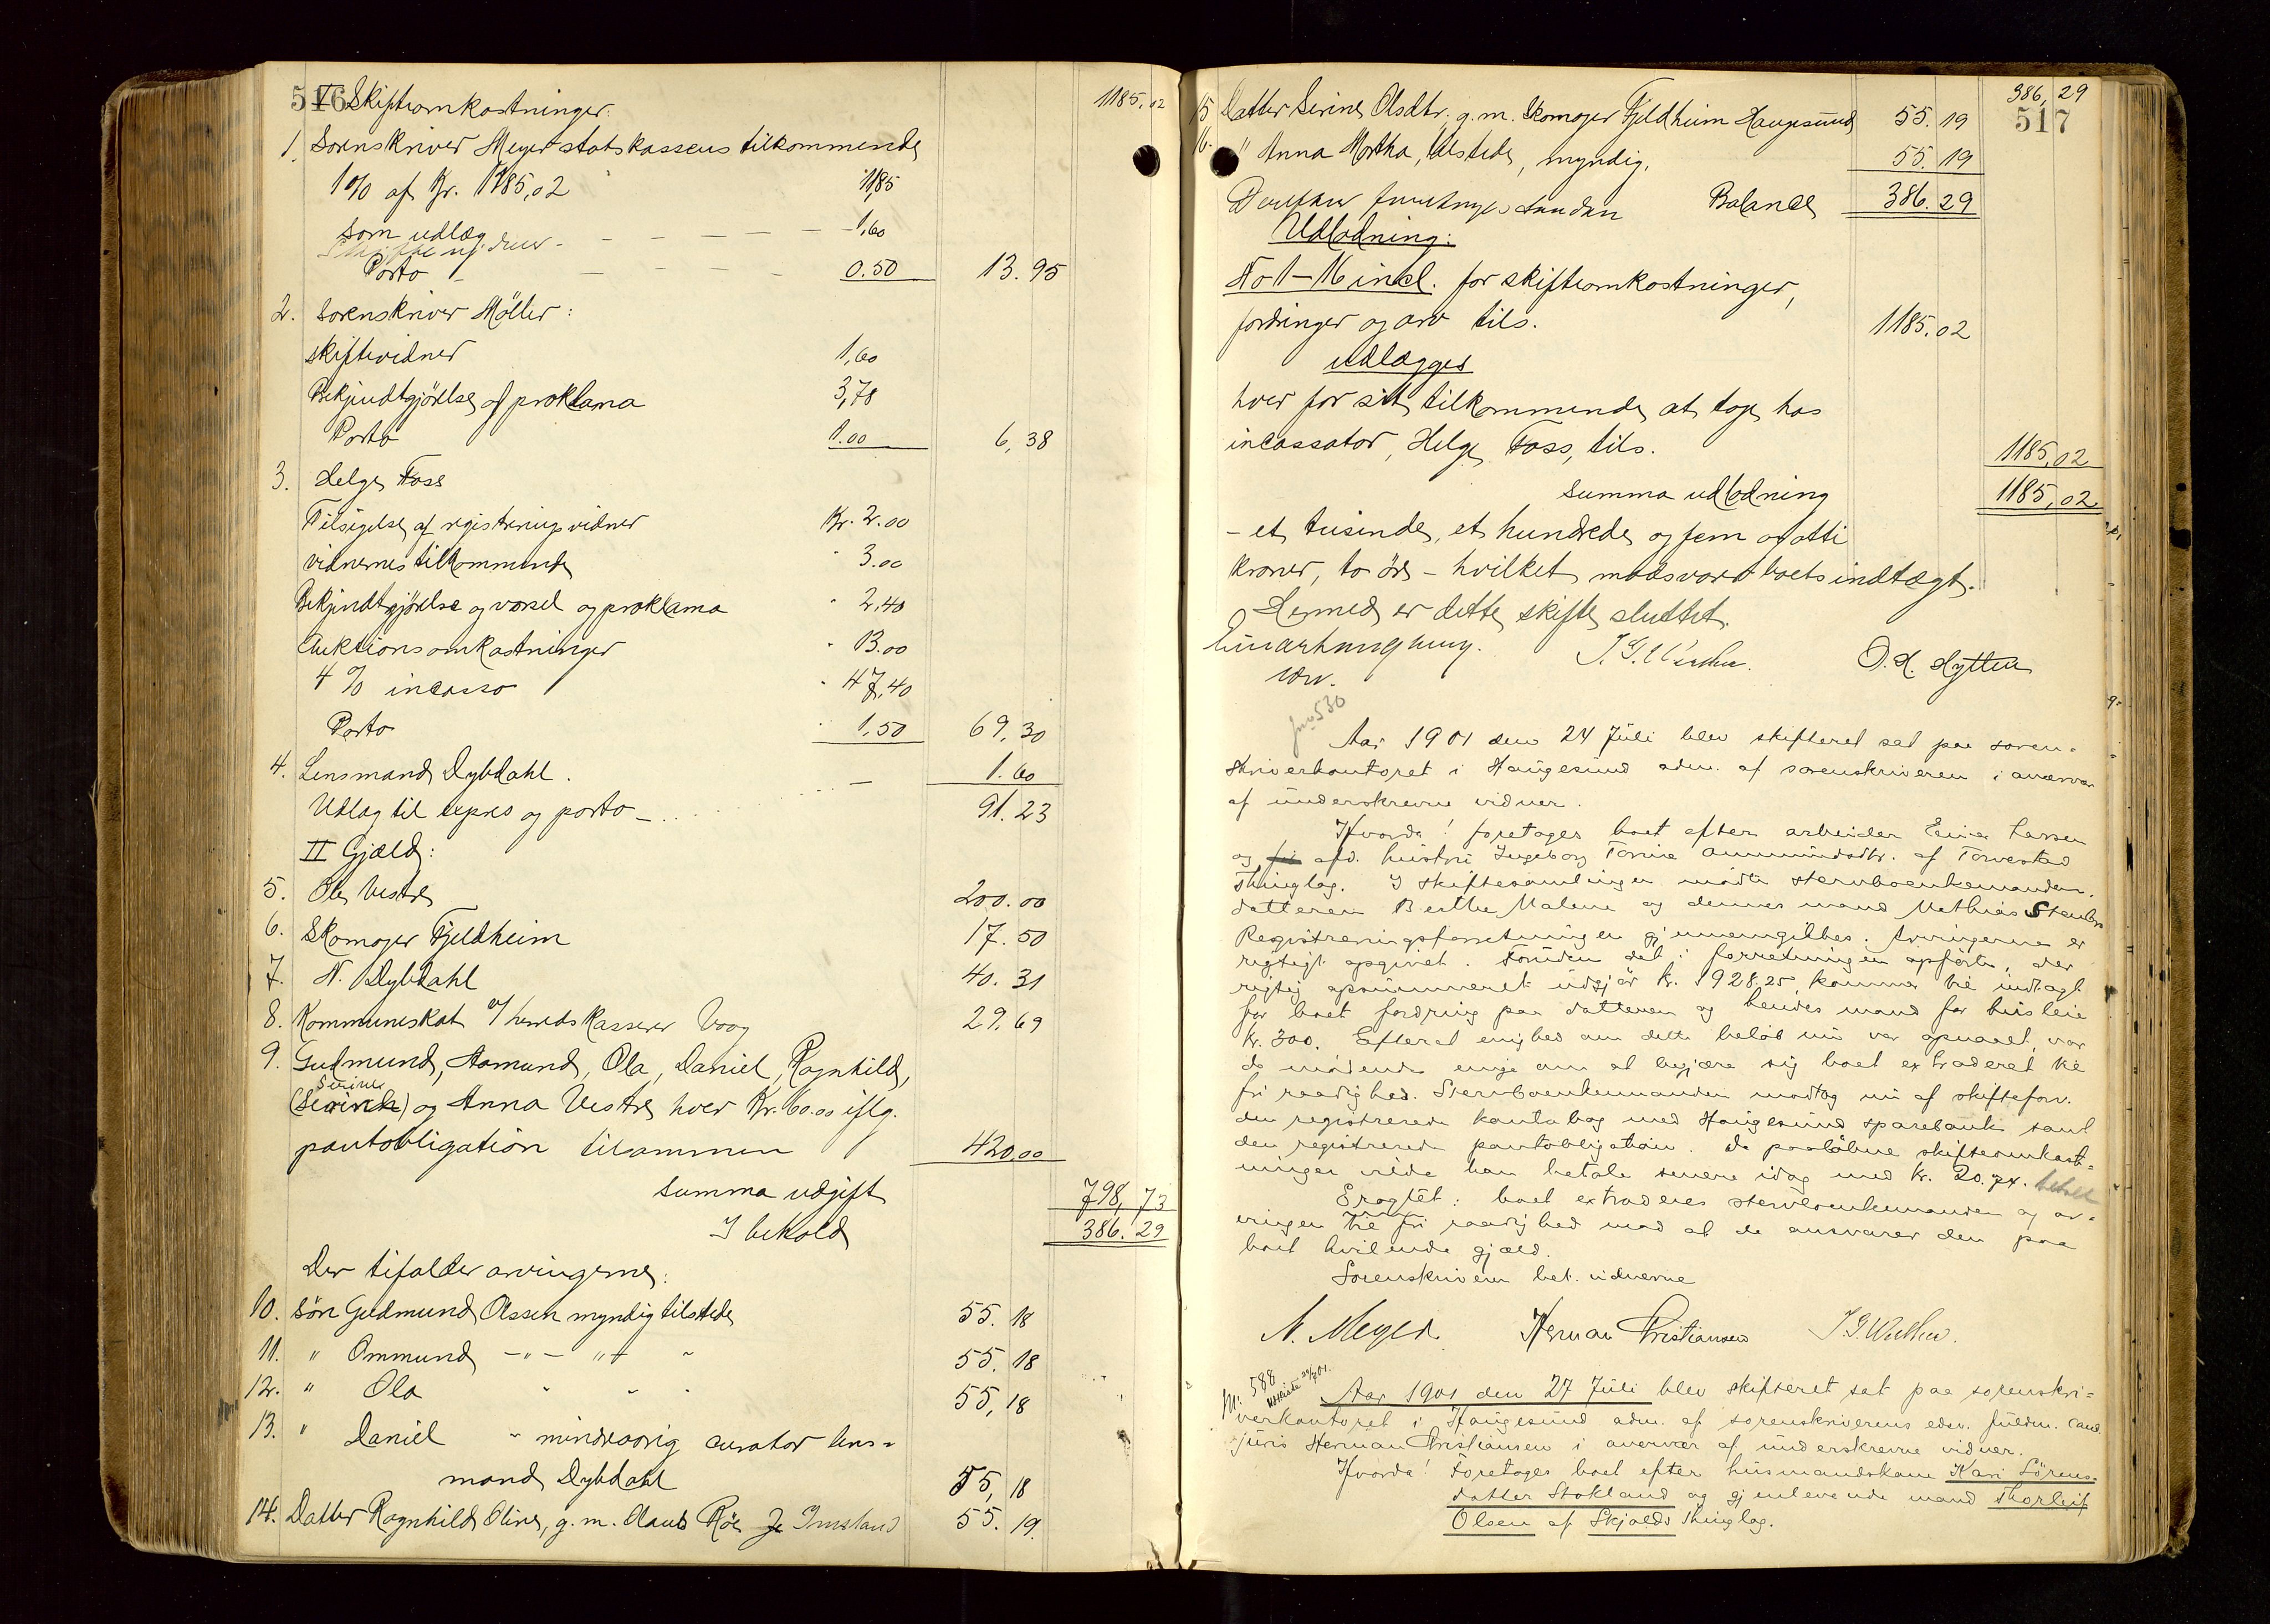 516
I Skifteomkostninger. 1185.02
1. Sorenskriver Meyer statskassens tilkommende
1% af Kr. 1185,02 11,85
som udlæg
Skiftevidner - 1,60
Porto - 0.50 13.95
2. Sorenskriver Möller:
skiftevidner 1,60
Bekjendtgjörelse af proklama 3,78
Porto 1.00 6,38
3. Helge Foss
Tilsigelse af registreringsvidner Kr. 2.00
vidnernes tilkommende " 3.00
Bekjendtgjörelse og varsel og proklama " 2,40
Auktionsomkostninger " 13.00
4% incasso " 47,40
Porto " 1,50 69,30
4. Lensmand Dybdahl. — 1.60
Udlag til expns og porto - 91.23
II Gjæld:
5. Ole Vestre 200.00
6. Skomager Fjeldheim 17.50
7. N. Dybdahl 40.31
8. Kommuneskat v/ herredskasserer Vaag 29.69
9. Gudmund, Aamund, Ola, Daniel, Ragnhild,
Serine
(Serine) og Anna Vestre hver Kr. 60.00 iflg.
pantobligation tilsammen 420,00
Summa udgift 798,73
I behold 386.29
Der tifalder arvingerne:
10. Sön Gudmund Olssen myndig tilstede 55.18
11. " Ommund -"- "+ " 55.18
12. " Ola " " " 55,18
13. " Daniel " mindreaarig curator lens=
mand Dybdahl 55,18
14. Datter Ragnhild Oline, g.m. Olaus Röe Je Imsland 55.19.
386,29
517
15 Datter Serine Olsdtr. g.m. Skomager Fjeldheim Haugesund 55.19
16. " Anna Martha, tilstede, myndig, 55.19
Balance 386.29
Udlodning:
No 1-16 incl. for skifteomkostninger,
fordringer og arv tils. 1185.02
udlægges
hver for sit tilkommende at tage hos
incassator, Helge Foss, tils. 1185,02
Summa udlodning 1185,02
- et tusinde, et hundrede og fem og otti
kroner, to öre - hvilket modsvarer boets indtægt.
Hermed er dette skifte sluttet.
O. H. Hytten
530
Aar 1901 den 24 Juli blev skifteret sat paa soren=
skriverkontoret i Haugesund adm. af sorenskriveren i overvær
af underskrevne vidner.
Hvorda! foretages boet efter arbeider Einar Larsen
og afd. hustru Ingeborg Torine Ommundsdtr. af Torvestad
Thinglag. I skiftesamlingen mödte stervboenkemanden,
datteren Berthe Malene og dennes mand Mathias
Registreringsforretningen gjennemgikkes. Arvingerne er
rigtigt opgivet. Foruden det i forretningen opförte, der
rigtig opsummeret udgjör kr. 1928.25, kommer til indtægt
for boet fordring paa datteren og hendes mand for husleie
kr. 300. Efterat enighed om dette belöb nu var opnaaet, var
de mödende enige om at begjære sig boet extraderet til
fri raadighed. Stervboenkemanden modtog nu af skifteforv.
den registrerede kontrabog med Haugesund sparebank samt
den registrerede pantobligation. De paalöbne skifteomkost=
ninger vilde han betale senere idag med kr. 20.74. betalt
Eragtet: boet extraderes stervboenkemanden og ar=
vingen til fri raadighed mod at de ansvarer den paa
boet hvilende gjæld.
Sorenskriveren bet. vidnerne
N. Meyer. Herman Christiansen
588
Aar 1901 den 27 Juli blev skifteret sat paa sorenskri=
verkontoret i Haugesund adm. af sorenskriverens edsv. fuldm. cand.
juris Herman Christiansen i overvær af underskrevne vidner.
Hvorda! Foretoges boet efter husmandskone Kari Sörens=
datter Stokland og gjenlevende mand Thorleif
Olsen af Skjolds Thinglag.